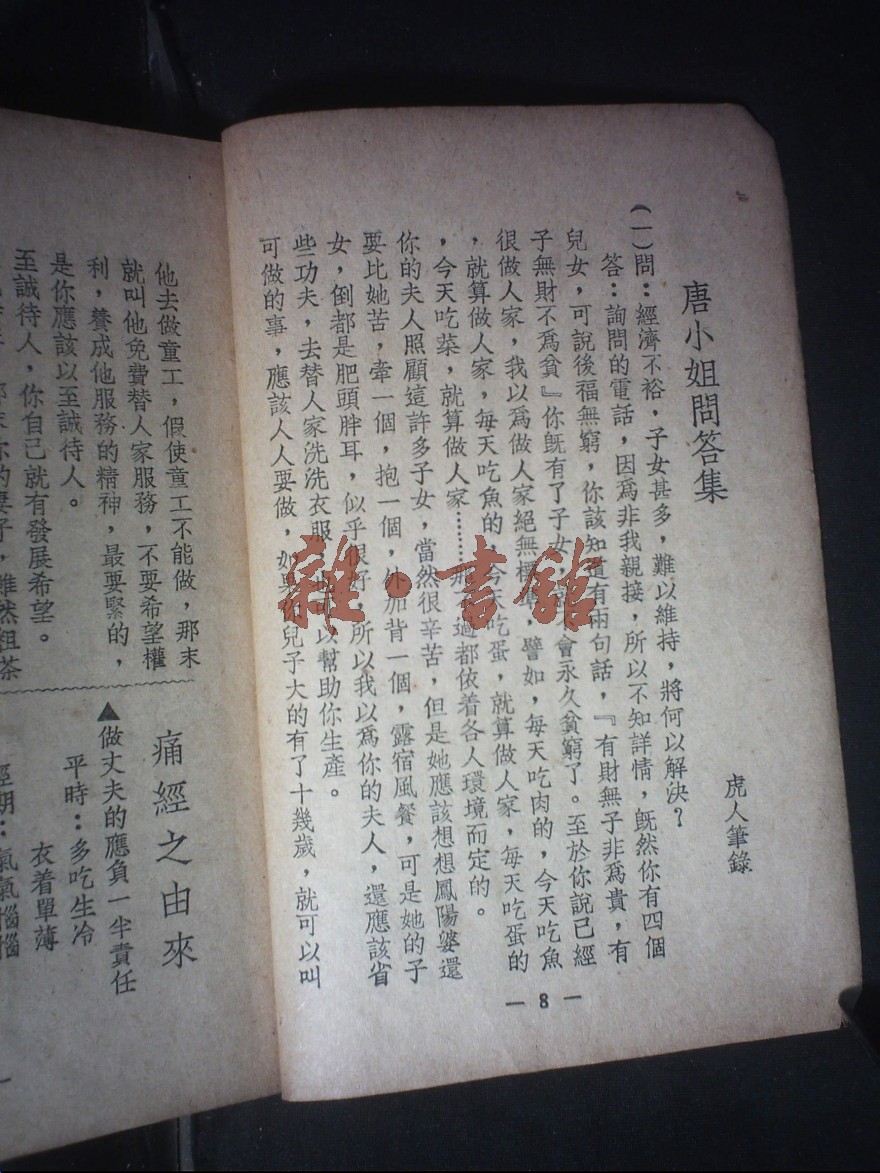 唐小姐問答集
虎人筆錄
(一)問：經濟不裕，子女甚多，難以維持，將何以解決？
答：詢問的電話，因爲非我親接，所以不知詳情，既然你有四個
兒女，可說後福無窮，你該知道有兩句話，『有財無子非爲貴，有
子無財不爲貧』你旣有了子女，會永久貧窮了。至於你說已經
很做人家，我以爲做人家絕無標準，譬如，每天吃肉的，今天吃魚
，就算做人家，每天吃魚的，今天吃蛋，就算做人家，每天吃蛋的
，今天吃菜，就算做人家………過都依着各人環境而定的。
你的夫人照顧這許多子女，當然很辛苦，但是她應該想想鳳陽婆還
要比她苦，牽一個，抱一個，外加背一個，露宿風餐，可是她的子
女，倒都是肥頭胖耳，似乎很好，所以我以爲你的夫人，還應該省
些功夫，去替人家洗洗衣服，以幫助你生產。
可做的事，應該人人要做，如果你兒子大的有了十幾歲，就可以叫
— 8 —
他去做童工，假使童工不能做，那末
就叫他免費替人家服務，不要希望權
利，養成他服務的精神，最要緊的，
是你應該以至誠待人。
至誠待人，你自己就有發展希望。
你的妻子，雖然粗茶
痛經之由來
▲做丈夫的應負一半責任
平時：多吃生冷
衣着單薄
經期：氣氣惱惱
雜·書館